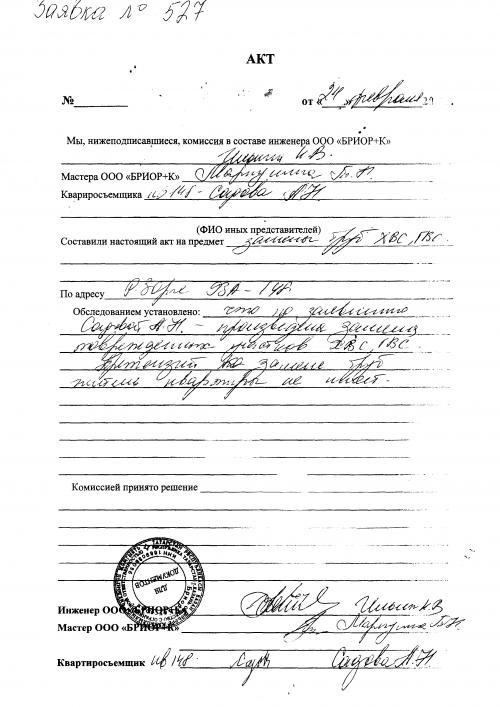 Заявка № 527
АКТ
№ от «24» февраля
Мы, нижеподписавшиеся, комиссия в составе инженера ООО «БРИОР+К»
Мастера ООО «БРИОР+К»
Кварироъемщика кв 148 - Садова А.Н.
(ФИО иных представителей)
Составили настоящий акт на предмет замены труб ХВС, ГВС.
По адресу Р Зорге 93А - 148
Обследованием установлено: что по заявлению
Садовой А.Н. - произведена замена
поврежденных участков ХВС, ГВС.
Претензий по замене труб
житель квартиры не имеет.
Комиссией принято решение
ДЛЯ ДОКУМЕНТОВ
Инженер ООО «БРИОР+К»
Мастер ООО «БРИОР+К»
Квартиросъемщик кв 148. Садова А.Н.